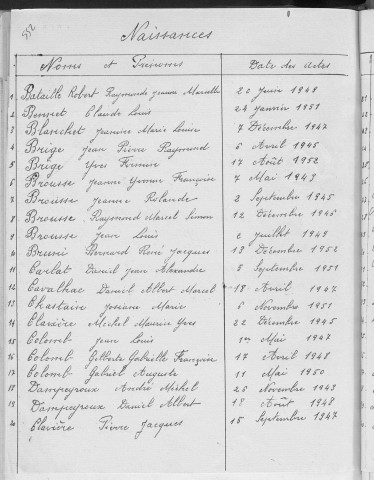 552
Naissances
Noms et Prénoms Date des actes
1 Bataille Robert Raymonde Jeanne Marcelle 20 Juin 1948
2 Bennet Claude Louis 24 Janvier 1951
3 Blanchet Jeanine Marie Louise 7 Décembre 1947
4 Brige Jean Pierre Raymond 6 Avril 1945
5 Brige Yves Firmin 17 Août 1952
6 Brousse Jeanne Yvonne Françoise 7 Mai 1943
7 Brousse Jeanne Rolande 2 Septembre 1945
8 Brousse Raymond Marcel Simon 12 Décembre 1946
9 Brousse Jean Louis 2 Juillet 1949
10 Bruni Bernard René Jacques 13 Décembre 1952
11 Carlat Daniel Jean Alexandre 5 Septembre 1951
12 Cavalhac Daniel Albert Marcel 18 Avril 1947
13 Chastain Josiane Marie 6 Novembre 1951
14 Claraire Michel Maurice Yves 22 Décembre 1945
15 Colomb Jean Louis 1er Mai 1947
16 Colomb Gilberte Gabrielle Françoise 17 Avril 1948
17 Colomb Gabriel Auguste 11 Mai 1950
18 Dampeyroux André Michel 26 Novembre 1943
19 Dampeyroux Daniel Albert 13 Août 1948
20 Clavière Pierre Jacques 15 Septembre 1947